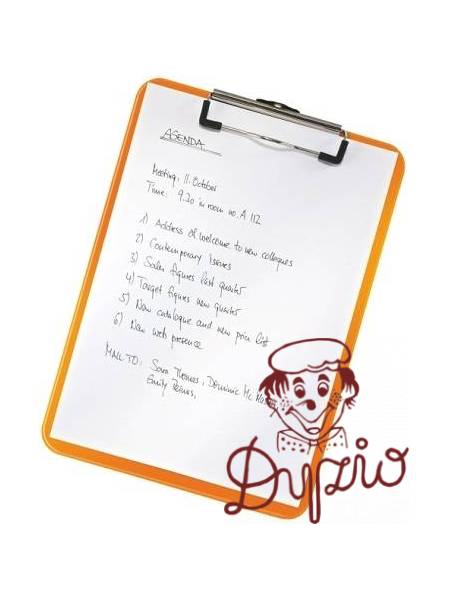 AGENDA
Meeting: 11. October
Time: 9.20 in room no. A 112
1) Address of welcome to new collegues
2) Contemporary Issues
3) Sales figures last quarter
4) Target figures new quarter
5) New catalogue and new price list
6) New web presence
MAIL TO: Sara Thomas, Dominic Mc
Emily
Dyzio